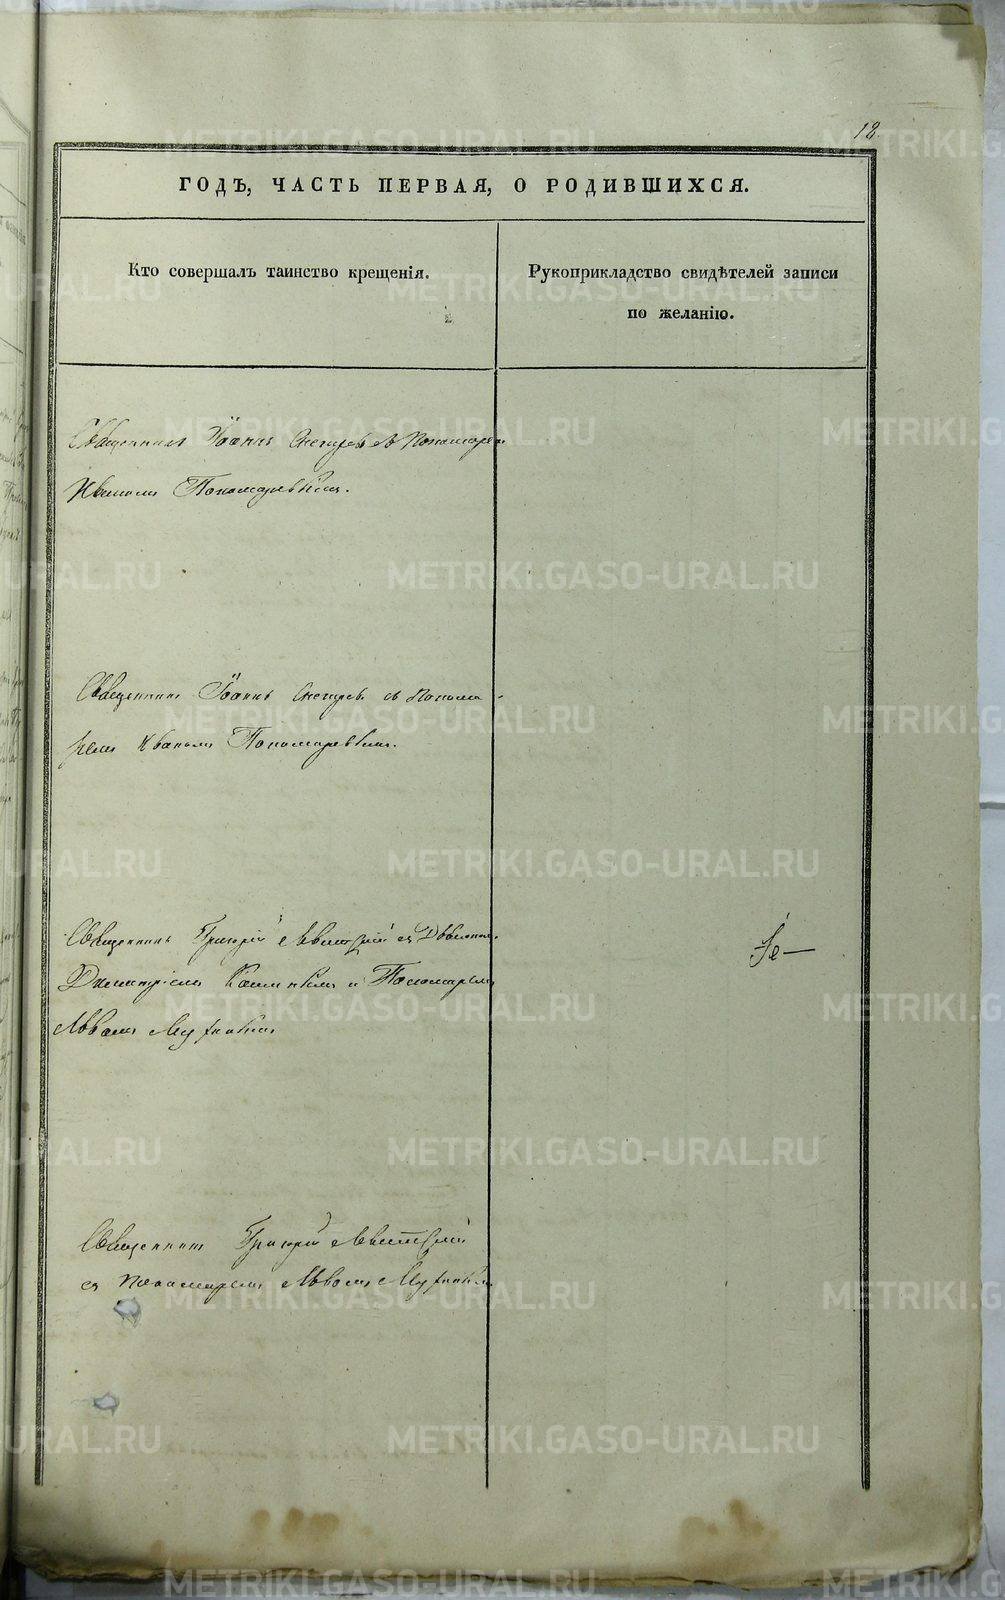 18.
ГОДЪ, ЧАСТЬ ПЕРВАЯ, О РОДИВШИХСЯ.
Кто совершалъ таинство крещенія.
Рукоприкладство свидѣтелей записи
по желанію.
Священникъ Іоаннъ съ Пономаремъ
Иваномъ Пономаревымъ.
Священникъ Іоаннъ съ Понома-
ремъ Иваномъ Пономаревымъ.
Священникъ Григорій Левитскій съ Діакономъ
Димитріемъ и Пономаремъ
Львомъ
Священникъ Григорій Левитскій
съ Пономаремъ Львомъ
METRIKI.GASO-URAL.RU